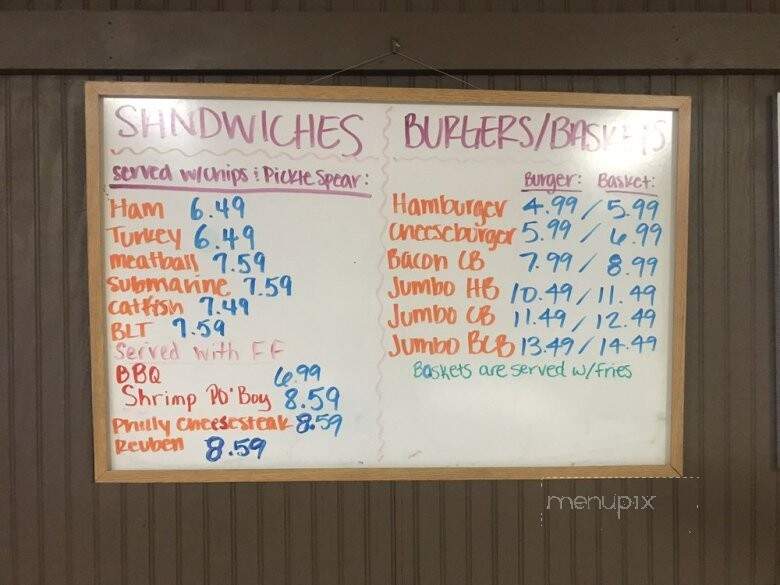 SANDWICHES
served w/chips & Pickle Spear:
Ham 6.49
Turkey 6.49
meatball 7.59
submarine 7.59
catfish 7.49
BLT 7.59
Served with FF
BBQ 6.99
Shrimp Po' Boy 8.59
Philly Cheesesteak 8.59
Reuben 8.59
BURGERS/BASKETS
Burger: Basket:
Hamburger 4.99 / 5.99
cheeseburger 5.99 / 6.99
Bacon CB 7.99 / 8.99
Jumbo HB 10.49 / 11.49
Jumbo CB 11.49 / 12.49
Jumbo BCB 13.49 / 14.49
Baskets are served w/fries
menupix